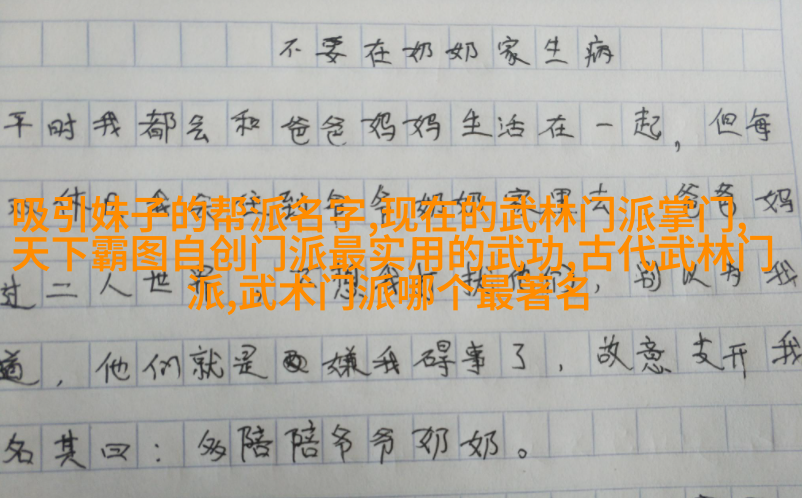 不要在奶奶家生病
平时我都会和爸爸妈妈生活在一起，但每
吸引妹子的帮派名字,现在的武林门派掌门,
天下霸图自创门派最实用的武功,古代武林门
派,武术门派哪个最著名
过二人世界
别以为我
道，他们就是嫌我碍事了，故意支开我
名其曰：多陪陪爷爷奶奶。